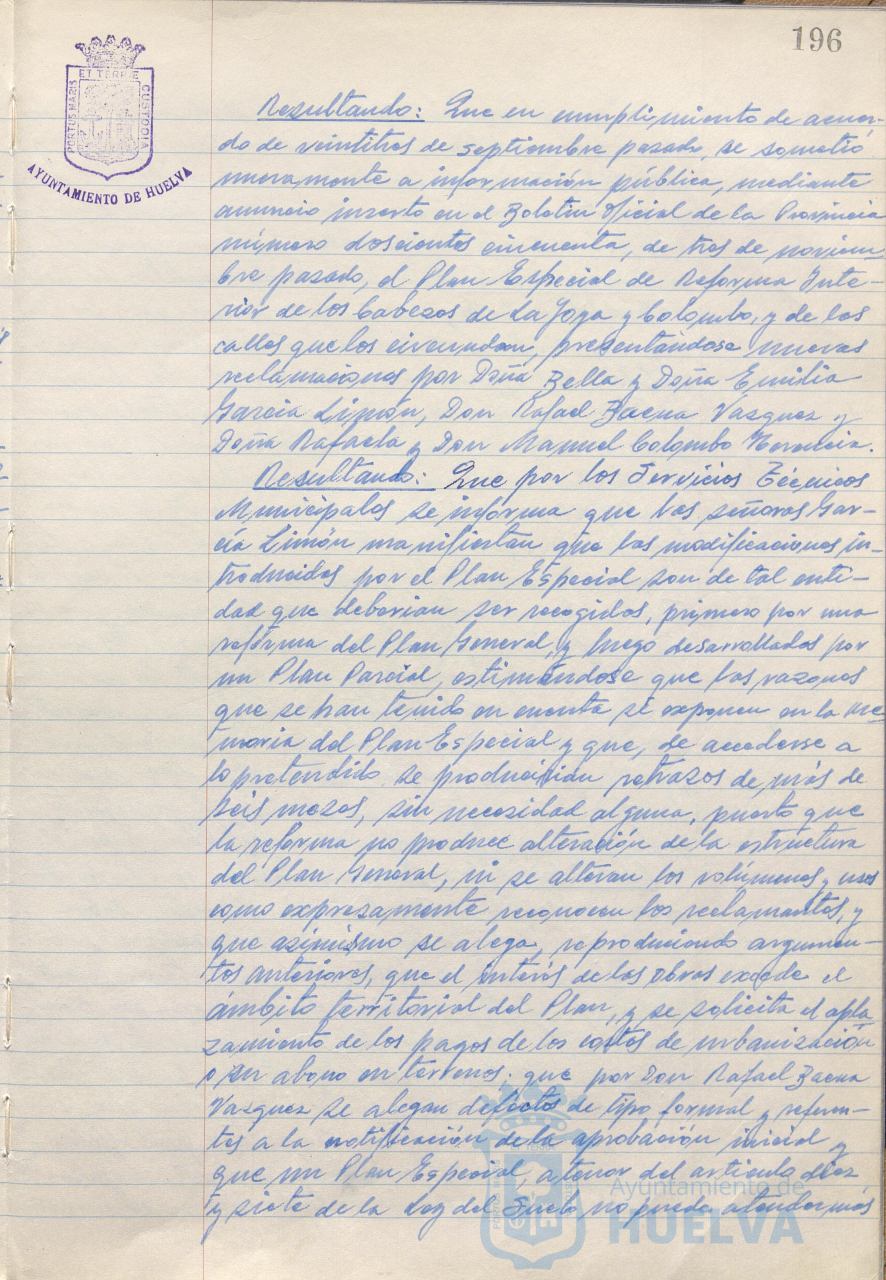 196
ET TERRE
PORTUS MARIS
CUSTODIA
AYUNTAMIENTO DE HUELVA
Resultando: Que en cumplimiento de acuer-
do de veintitres de septiembre pasado, se sometió
nuevamente a información pública, mediante
anuncio inserto en el Boletín Oficial de la Provincia
número doscientos cincuenta, de tres de noviem-
bre pasado, el Plan Especial de Reforma Inte-
rior de los Cabezos de La Joya y Colombo, y de las
calles que los circundan, presentándose nuevas
reclamaciones por Doña Bella y Doña Emilia
Garcia Limón, Don Rafael Baena Vazquez y
Doña Rafaela y Don Manuel Colombo
Resultando: Que por los Servicios Técnicos
Municipales se informa que las señoras Gar-
cía Limón manifiestan que las modificaciones in-
troducidas por el Plan Especial son de tal enti-
dad que deberian ser recogidas, primero por una
reforma del Plan General, y luego desarrollados por
un Plan Parcial, estimándose que las razones
que se han tenido en cuenta se exponen en la me-
moria del Plan Especial y que, de accederse a
lo pretendido se producirían retrazos de más de
seis meses, sin necesidad alguna, puesto que
la reforma no produce alteración de la estructura
del Plan General, ni se alteran los volúmenes y usos
como expresamente reconocen los reclamantes, y
que asimismo se alega, reproduciendo argumen-
tos anteriores, que el interés de las obras excede el
ámbito territorial del Plan, y se solicita el apla-
zamiento de los pagos de los costos de urbanización
o su abono en terrenos; que por Don Rafael Baena
Vazquez se alegan defectos de tipo formal y referen-
tes a la notificación de la aprobación inicial y
que un Plan Especial, a tenor del artículo diez
y siete de la Ley del Suelo, no puede atender más
Ayuntamiento de
HUELVA